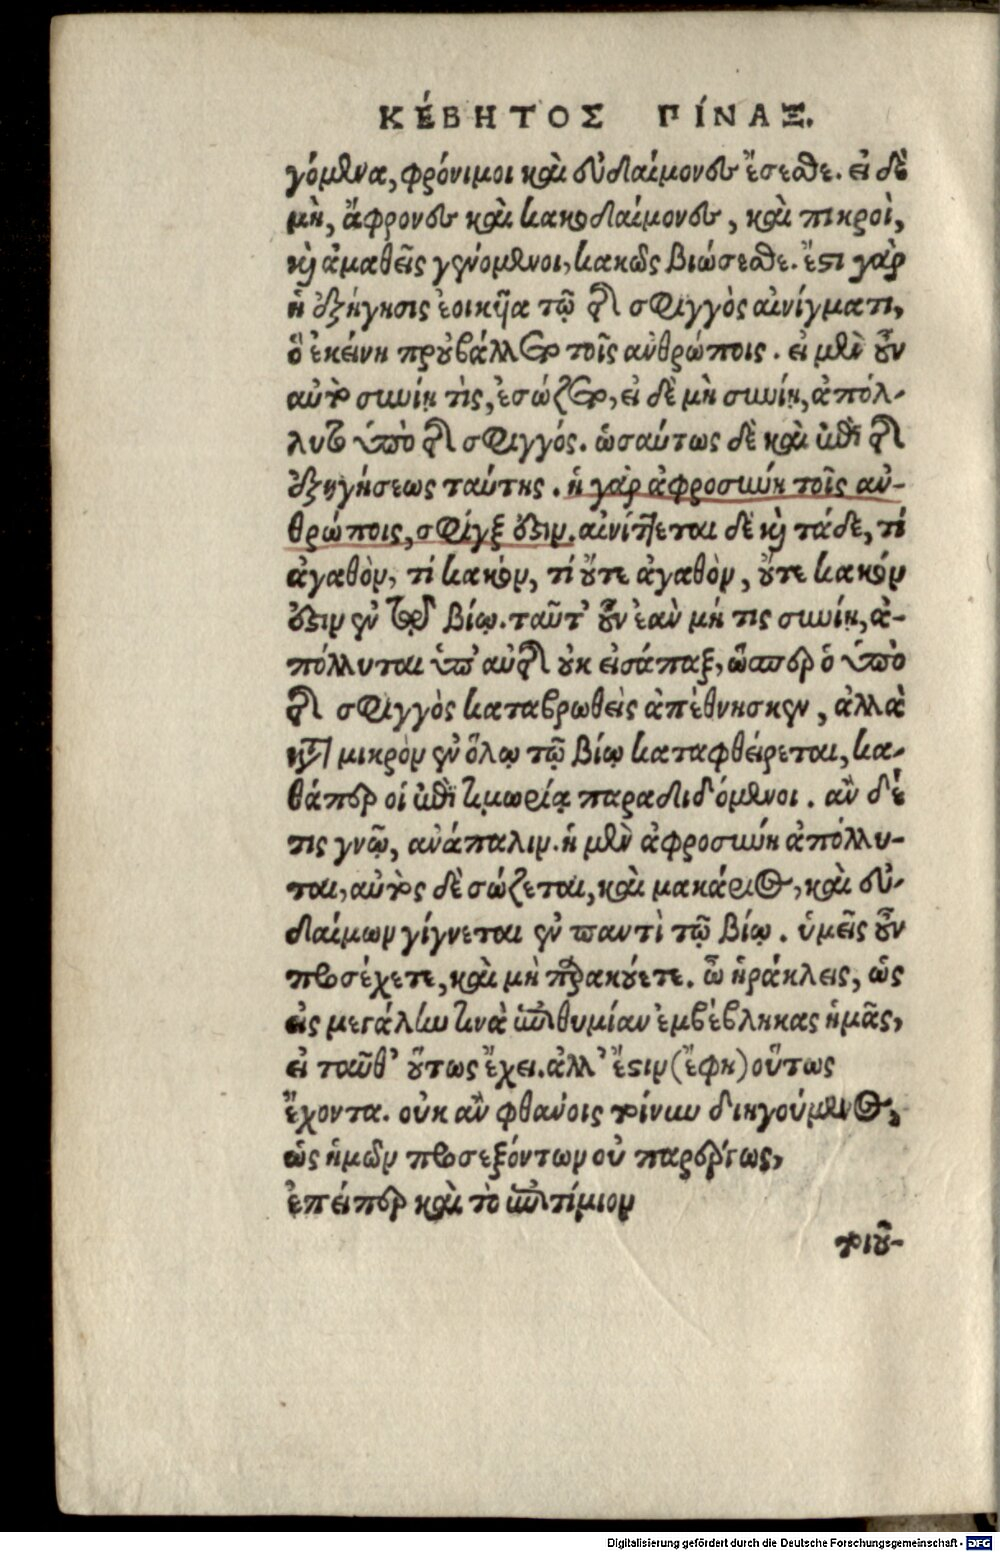 ΚΈΒΗΤΟΣ ΠΊΝΑΞ.
γόμενα, φρόνιμοι καὶ εὐδαίμονες ἔσεσθε. εἰ δὲ
μὴ, ἄφρονες καὶ κακοδαίμονες, καὶ πικροὶ,
καὶ ἀμαθεῖς γενόμενοι, κακῶς βιώσεσθε. ἔστι γὰρ
ἡ ἐξήγησις ἐοικῦα τῷ τῆς σφιγγὸς αἰνίγματι,
ὃ ἐκείνη προὐβάλλετο τοῖς ἀνθρώποις. εἰ μὲν οὖν
αὐτὸ συνίη τὶς, ἐσώζετο, εἰ δὲ μὴ συνίη, ἀπόλ-
λυτο ὑπὸ τῆς σφιγγός. ὡσαύτως δὲ καὶ ἐπὶ τῆς
ἐξηγήσεως ταύτης. ἡ γὰρ ἀφροσύνη τοῖς αν-
θρώποις, σφίγξ ἐστιν. αἰνίττεται δὲ καὶ τάδε, τί
ἀγαθὸν, τί κακόν, τί οὔτε ἀγαθὸν, οὔτε κακόν
ἐστιν ἐν τῷ βίῳ. ταῦτ' οὖν ἐὰν μή τις συνίη, ἀ-
πόλλυται ὑπ' αὐτῆς οὐκ εἰσάπαξ, ὥσπερ ὁ ὑπὸ
τῆς σφιγγὸς καταβρωθεὶς ἀπέθνησκεν, ἀλλὰ
κατὰ μικρὸν ἐν ὅλῳ τῷ βίῳ καταφθείρεται, κα-
θάπερ οἱ ἐπὶ τιμωρίᾳ παραδιδόμενοι. ἂν δέ
τις γνῷ, ἀνάπαλιν. ἡ μὲν ἀφροσύνη ἀπόλλυ-
ται, αὐτὸς δὲ σώζεται, καὶ μακάριος, καὶ εὐ-
δαίμων γίγνεται ἐν παντὶ τῷ βίῳ. ὑμεῖς οὖν
προσέχετε, καὶ μὴ παρακούετε. ὦ ἡράκλεις, ὡς
εἰς μεγάλην τινὰ ἐπιθυμίαν ἐμβέβληκας ἡμᾶς,
εἰ ταῦθ' οὕτως ἔχει. ἀλλ' ἔστιν (ἔφη) οὕτως
ἔχοντα. οὐκ ἂν φθάνοις τοίνυν διηγούμενος,
ὡς ἡμῶν προσεξόντων οὐ παρέργως,
ἐπείπερ καὶ τὸ ἐπιτίμιον
τοιοῦ-
Digitalisierung gefördert durch die Deutsche Forschungsgemeinschaft - DFG